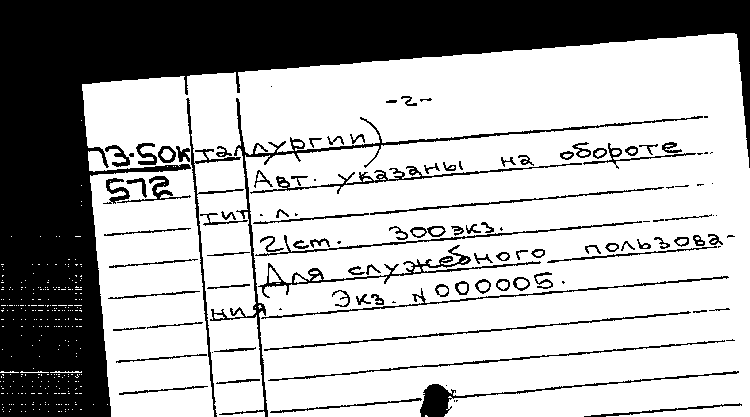 -2-
73-50к таллургии)
572 Авт. указаны на обороте
тит. л.
21ст. 300экз.
Для служебного пользова-
ния. Экз. N000005.